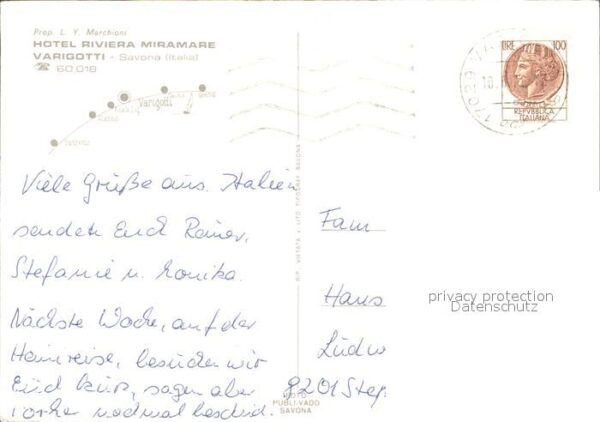 Prop. L. Y. Marchioni
HOTEL RIVIERA MIRAMARE
VARIGOTTI - Savona (Italia)
☎ 60.018
Varigotti
LIRE 100
REPVBBLICA
ITALIANA
17029 VA
Viele Grüße aus Italien
senden Euch Rainer,
Stefanie u. Monika.
Nächste Woche, auf der
Heimreise, besuchen wir
Euch kurz, sagen aber
vorher nochmal bescheid.
RIP. VIETATA
SAVONA
FOTO
PUBLI-VADO
SAVONA
Fam
Hans
Ludw
8201 Step
privacy protection
Datenschutz